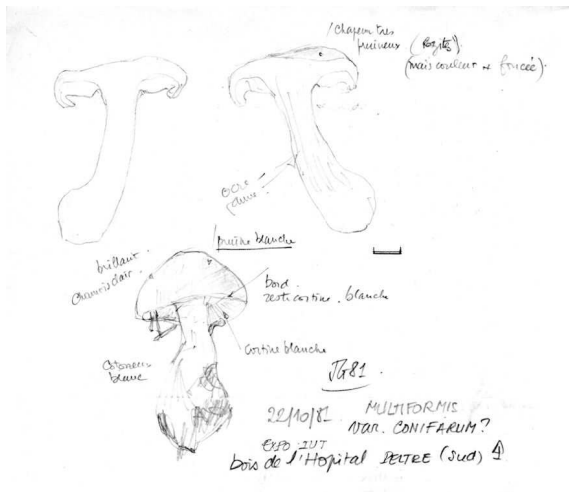 Chapeau très
pruineux (Rozites)
(mais couleur + foncée).
ocre
jaune
pruine blanche
brillant.
chamois clair.
bord
reste cortine. blanche
Cortine blanche
Cotonneux
blanc
JG81.
22/10/81. MULTIFORMIS
var. CONIFARUM?
EXPO IUT
bois de l'Hopital PELTRE (Sud)